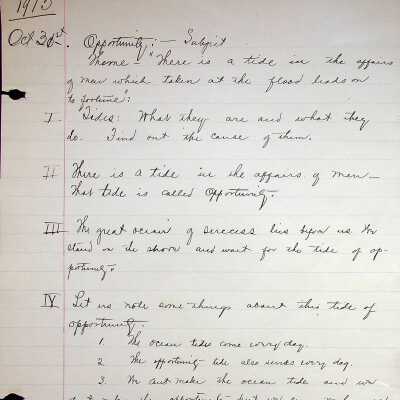 1913
Oct 31st. Opportunity: — Subject
Theme - "There is a tide in the affairs
of man which taken at the flood leads on
to fortune":
I Tides: What they are and what they
do. Find out the cause of them.
II There is a tide in the affairs of men —
that tide is called Opportunity.
III The great ocean of success lies before us. We
stand on the shore and wait for the tide of op-
portunity.
IV Let us note some things about this tide of
opportunity.
1. The ocean tides come every day.
2. The opportunity tide also comes every day.
3. We dont make the ocean tide and we